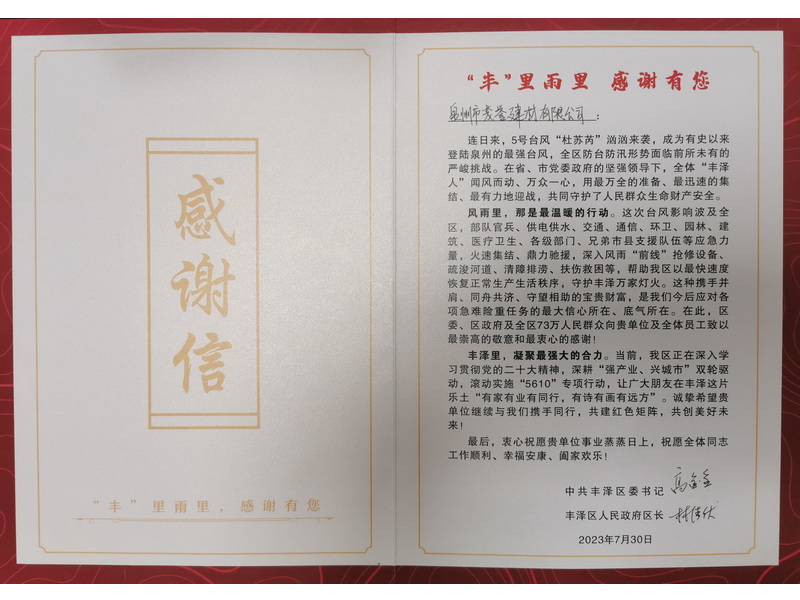 感谢信
“丰”里雨里,感谢有您
“丰”里雨里 感谢有您
泉州市麦誉建材有限公司:
连日来,5号台风“杜苏芮”汹汹来袭,成为有史以来
登陆泉州的最强台风,全区防台防汛形势面临前所未有的
严峻挑战。在省、市党委政府的坚强领导下,全体“丰泽
人”闻风而动、万众一心,用最万全的准备、最迅速的集
结、最有力地迎战,共同守护了人民群众生命财产安全。
风雨里,那是最温暖的行动。这次台风影响波及全
区,部队官兵、供电供水、交通、通信、环卫、园林、建
筑、医疗卫生、各级部门、兄弟市县支援队伍等应急力
量,火速集结、鼎力驰援,深入风雨“前线”抢修设备、
疏浚河道、清障排涝、扶伤救困等,帮助我区以最快速度
恢复正常生产生活秩序,守护丰泽万家灯火。这种携手并
肩、同舟共济、守望相助的宝贵财富,是我们今后应对各
项急难险重任务的最大信心所在、底气所在。在此,区
委、区政府及全区73万人民群众向贵单位及全体员工致以
最崇高的敬意和最衷心的感谢!
丰泽里,凝聚最强大的合力。当前,我区正在深入学
习贯彻党的二十大精神,深耕“强产业、兴城市”双轮驱
动,滚动实施“5610”专项行动,让广大朋友在丰泽这片
乐土“有家有业有同行,有诗有画有远方”。诚挚希望贵
单位继续与我们携手同行,共建红色矩阵,共创美好未
来!
最后,衷心祝愿贵单位事业蒸蒸日上,祝愿全体同志
工作顺利、幸福安康、阖家欢乐!
中共丰泽区委书记
丰泽区人民政府区长 林伟伏
2023年7月30日